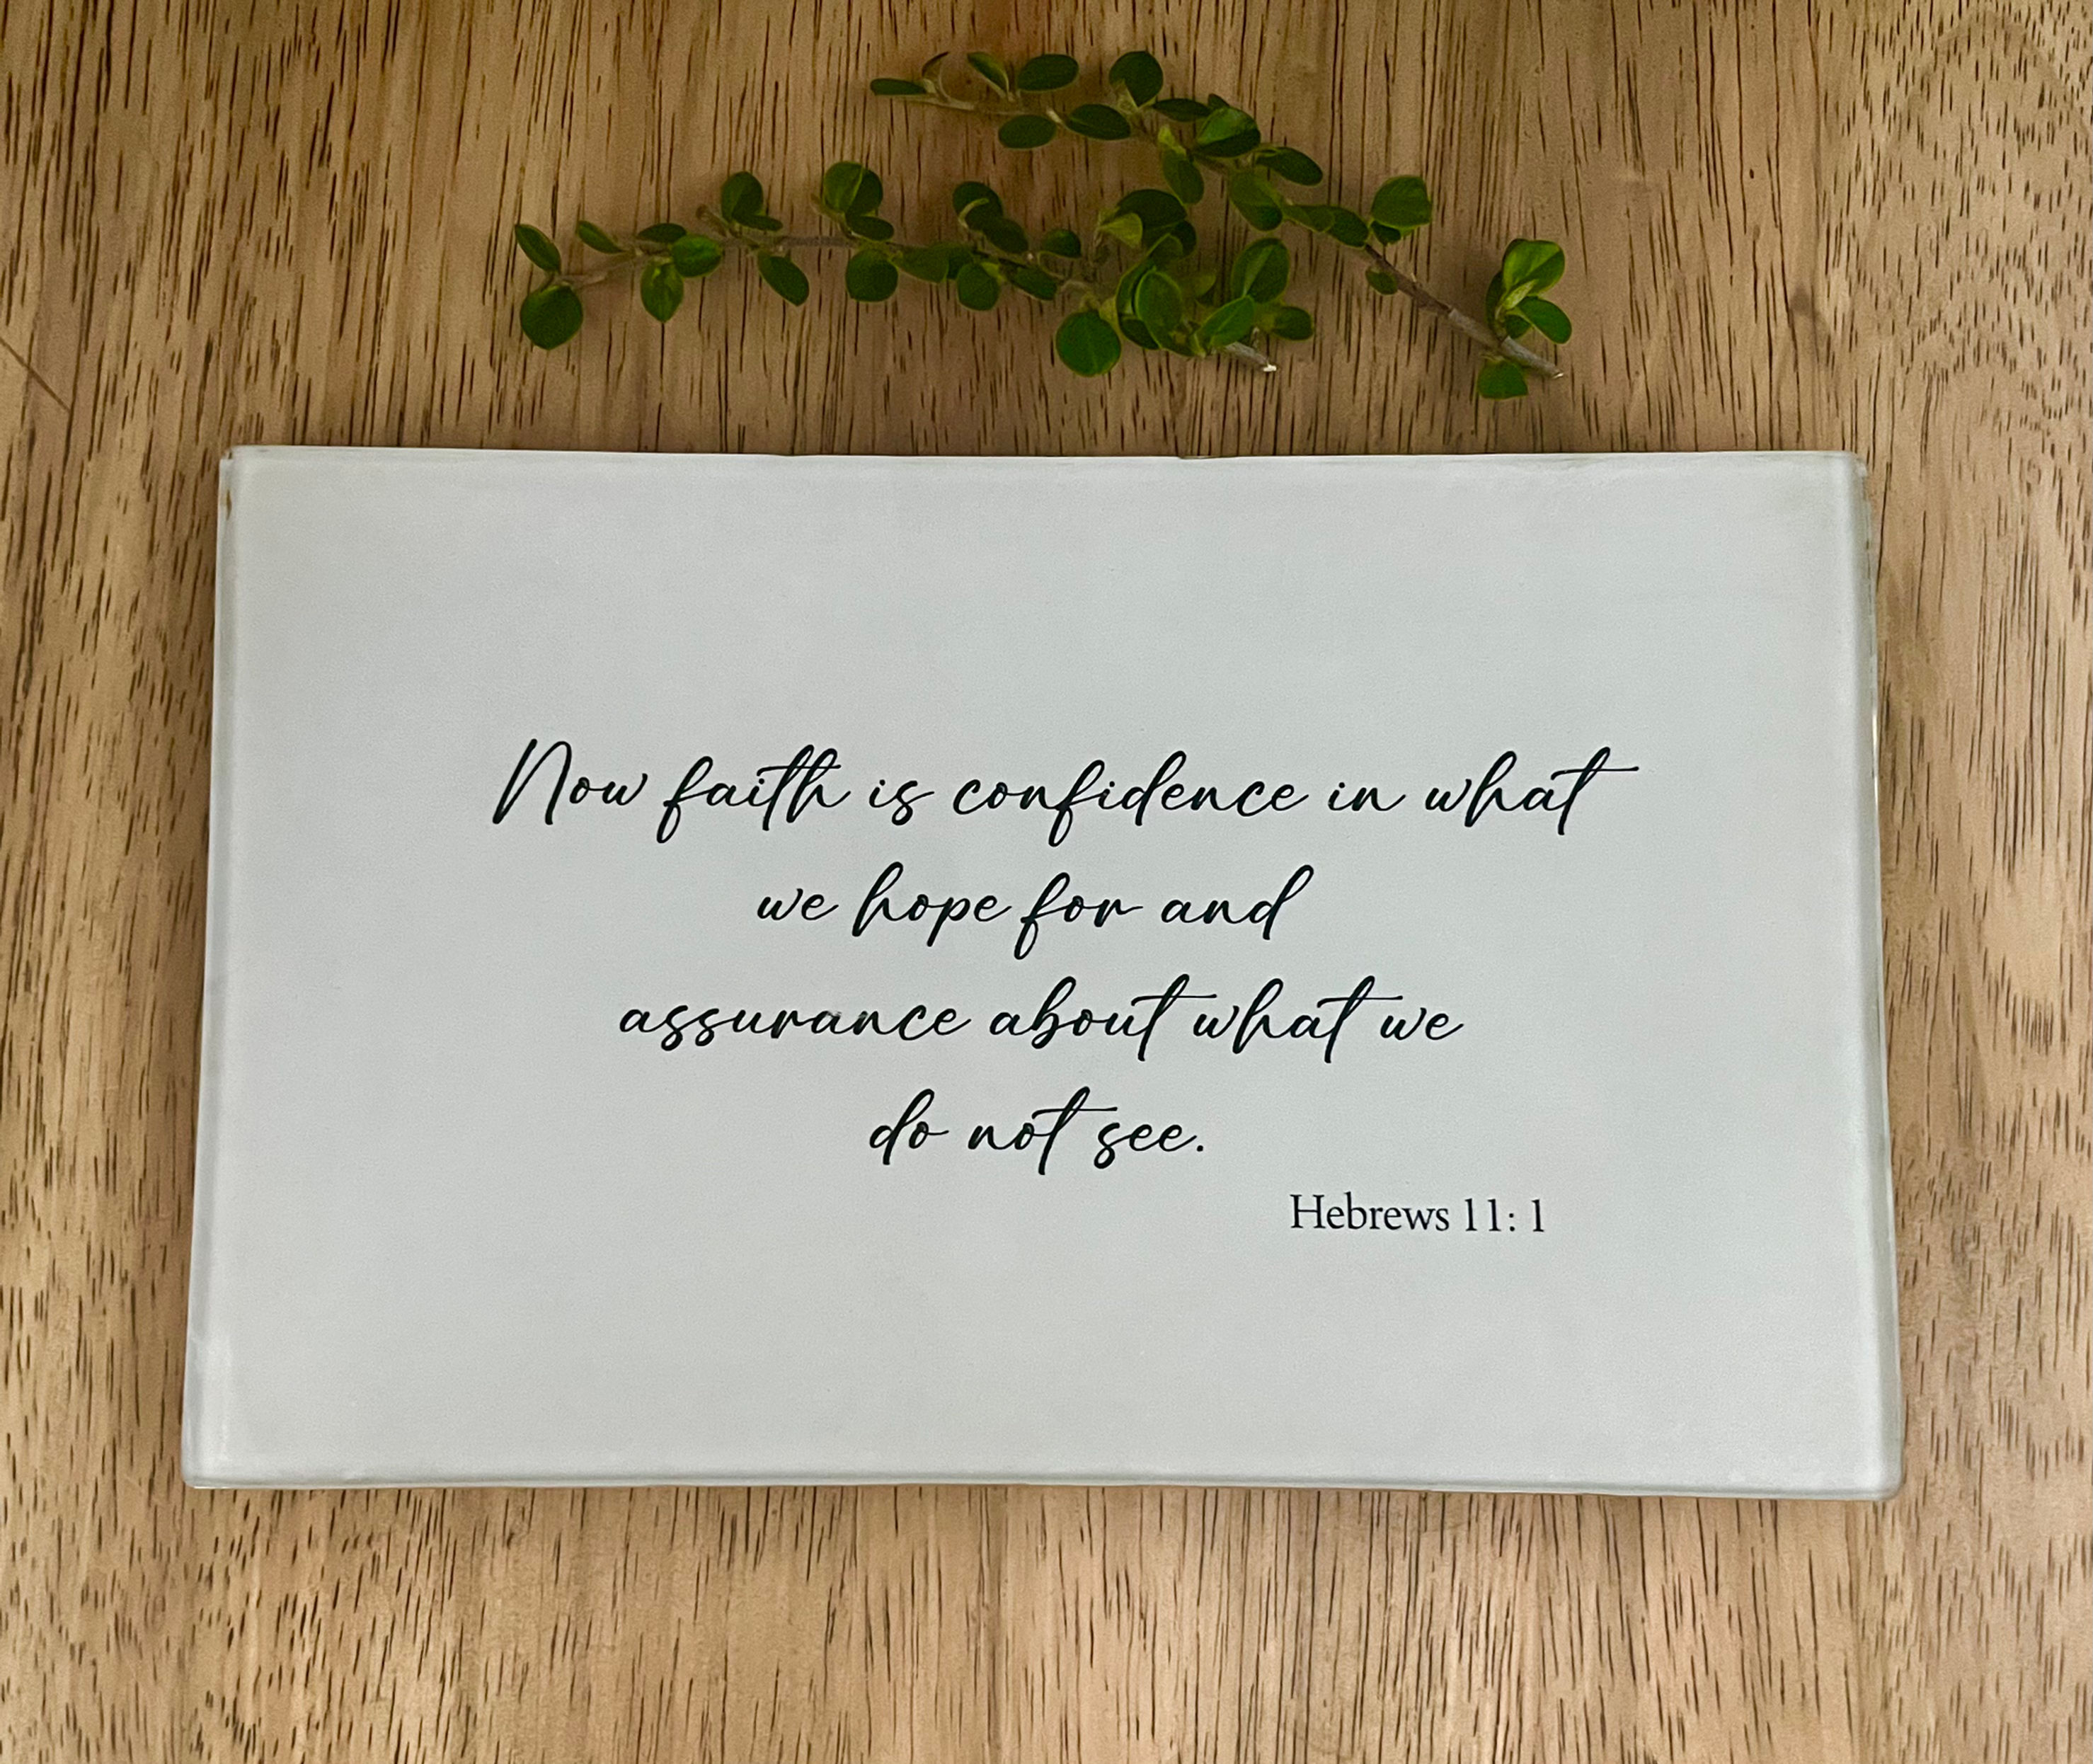 Now faith is confidence in what
we hope for and
assurance about what we
do not see.
Hebrews 11: 1